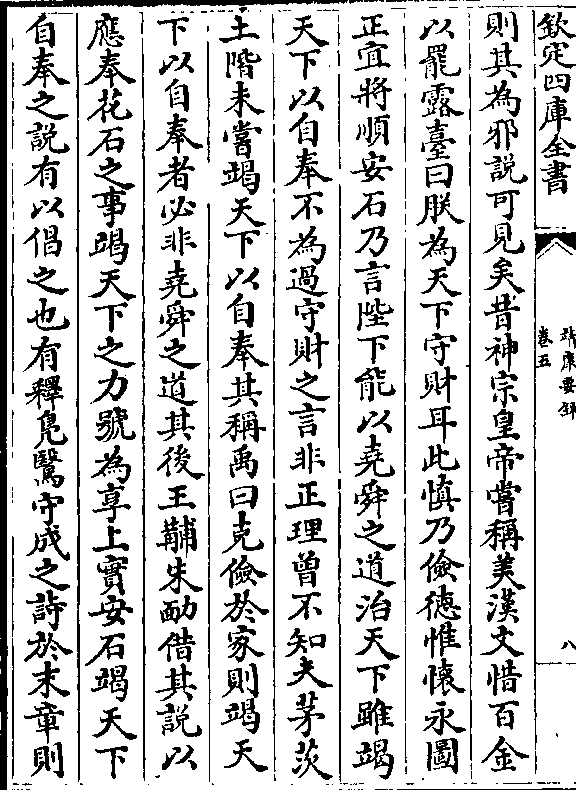 欽定四庫全書
靖康要錄
卷五
八
則其為邪說可見矣昔神宗皇帝嘗稱美漢文惜百金
以罷露臺曰朕為天下守財耳此慎乃儉德惟懷永圖
正宜將順安石乃言陛下能以堯舜之道治天下雖竭
天下以自奉不為過守財之言非正理曾不知夫茅茨
土階未嘗竭天下以自奉其稱禹曰克儉於家則竭天
下以自奉者必非堯舜之道其後王黼朱勔借其說以
應奉花石之事竭天下之力號為享上實安石竭天下
自奉之說有以倡之也有釋鳧鷖守成之詩於末章則